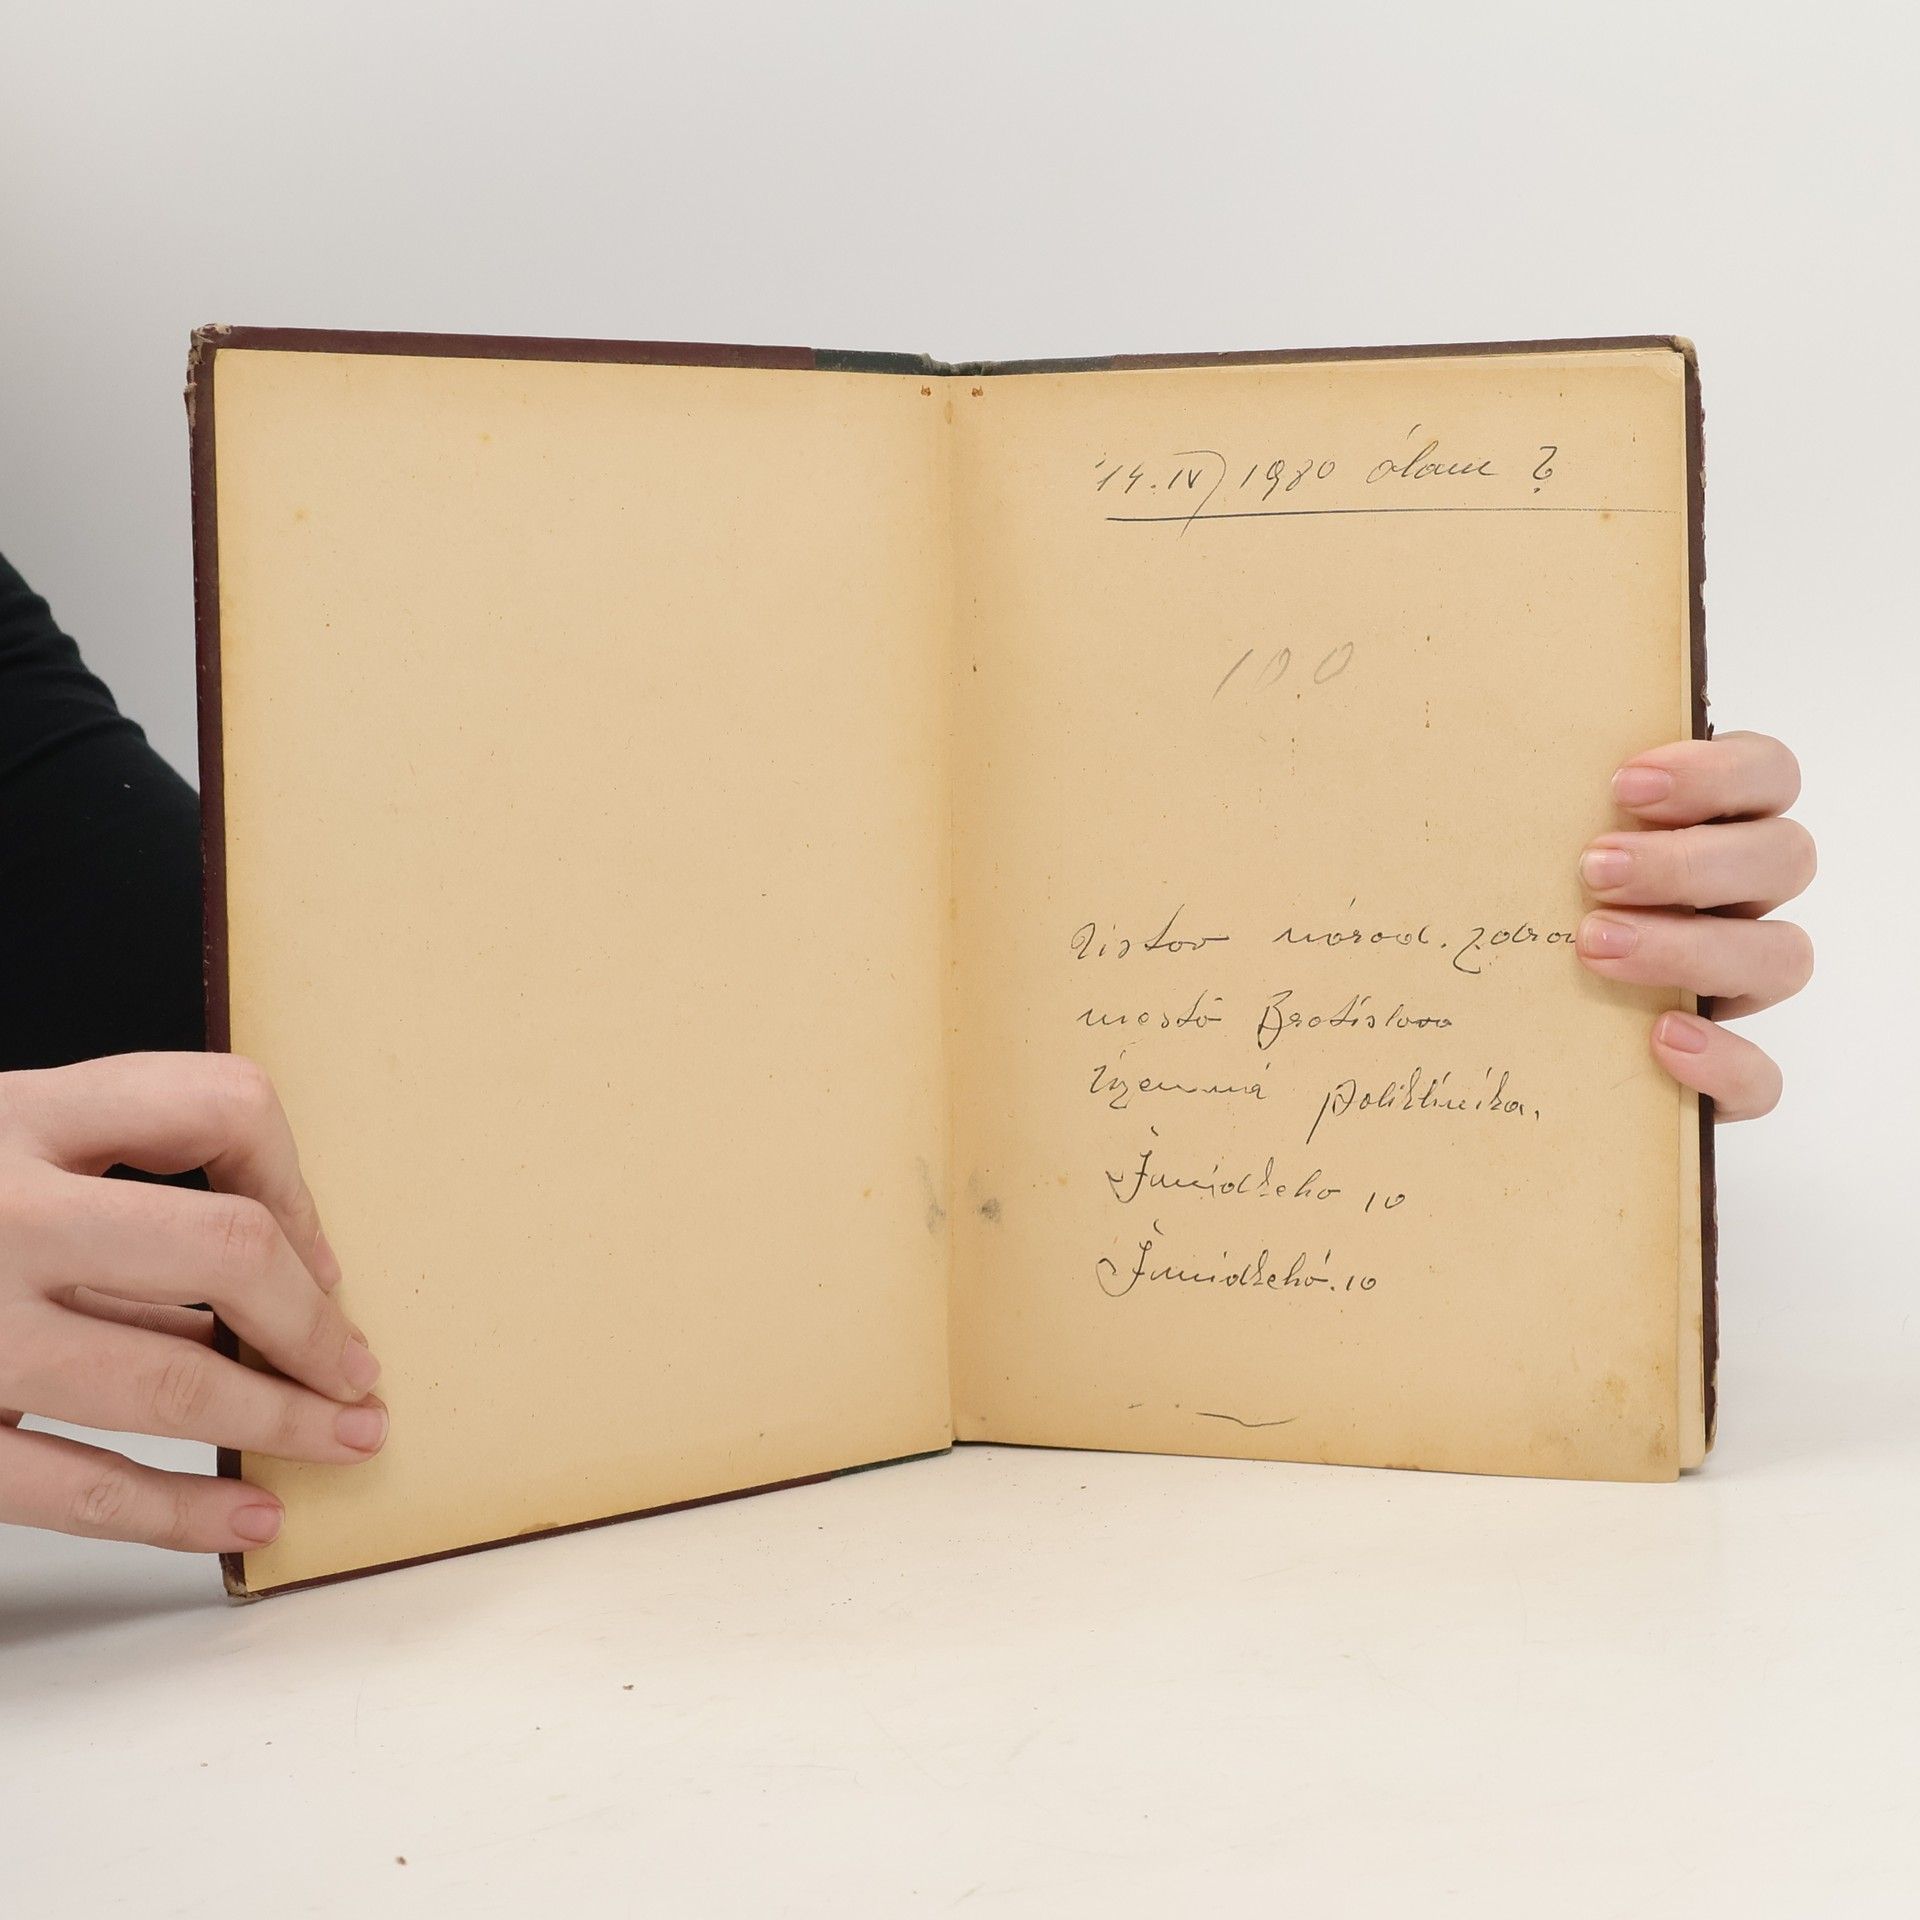 14. IV 1980 ólam ?
100
Ústav národ. zdra
mesta Bratislava
Územná poliklinika.
Šmidkeho 10
Šmidkehó. 10